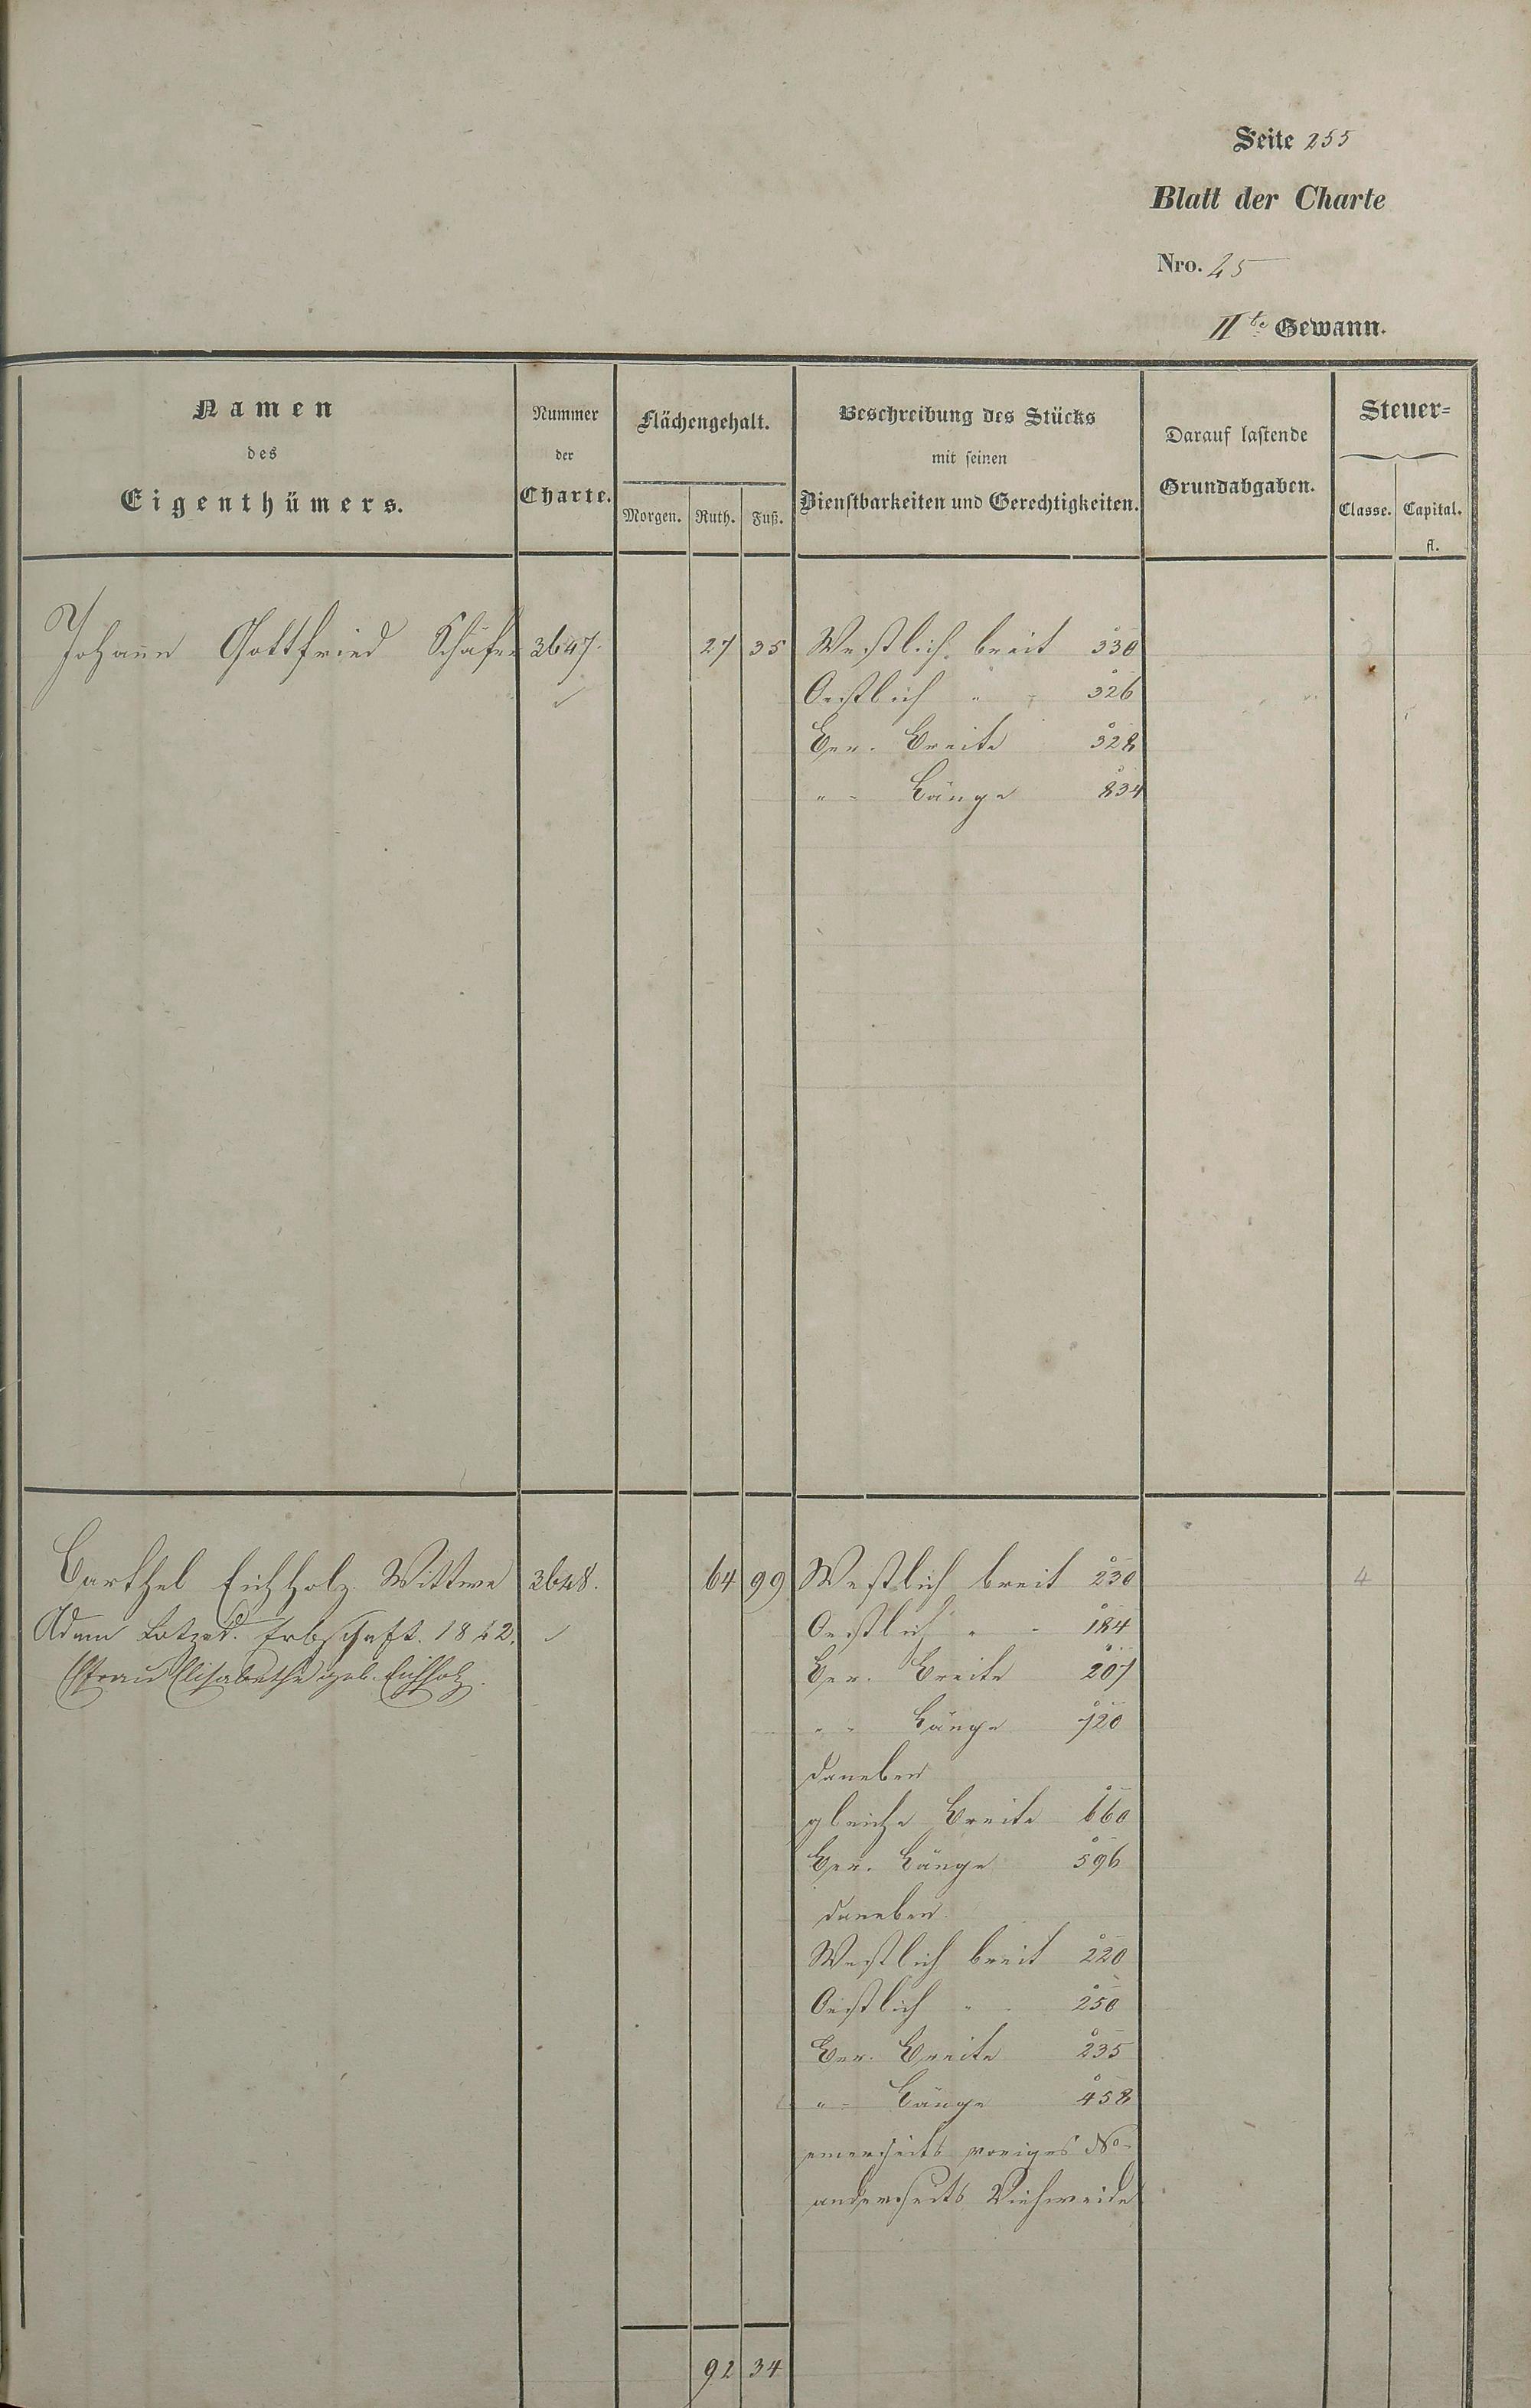 Seite 255
Blatt der Charte
Nro. 25
IIte Gewann.
Namen
des
Eigenthümers.
Nummer
der
Charte.
Flächengehalt.
Morgen. Ruth. Fuß.
Beschreibung des Stücks
mit seinen
Dienstbarkeiten und Gerechtigkeiten.
Darauf lastende
Grundabgaben.
Steuer=
Classe. Capital.
fl.
Johann Gottfried Schäfer 3647. 27 35 Westlich breit 330
Oestlich " - 326
Gen. Breite 328
" - Länge 834
Barthel Eichholz Wittwe 3648. 64 99 Westlich breit 230 4
Adam Erbschaft. 1842. Oestlich " - 184
Frau Elisabethe geb. Eichholz. Gen. Breite 207
" - Länge 720
daneben
gleiche Breite 660
Gen. Länge 596
daneben
Westlich breit 220
Oestlich " 250
Gen. Breite 235
" - Länge 458
einerseits voriges No.
anderseits Viehweide
92 34